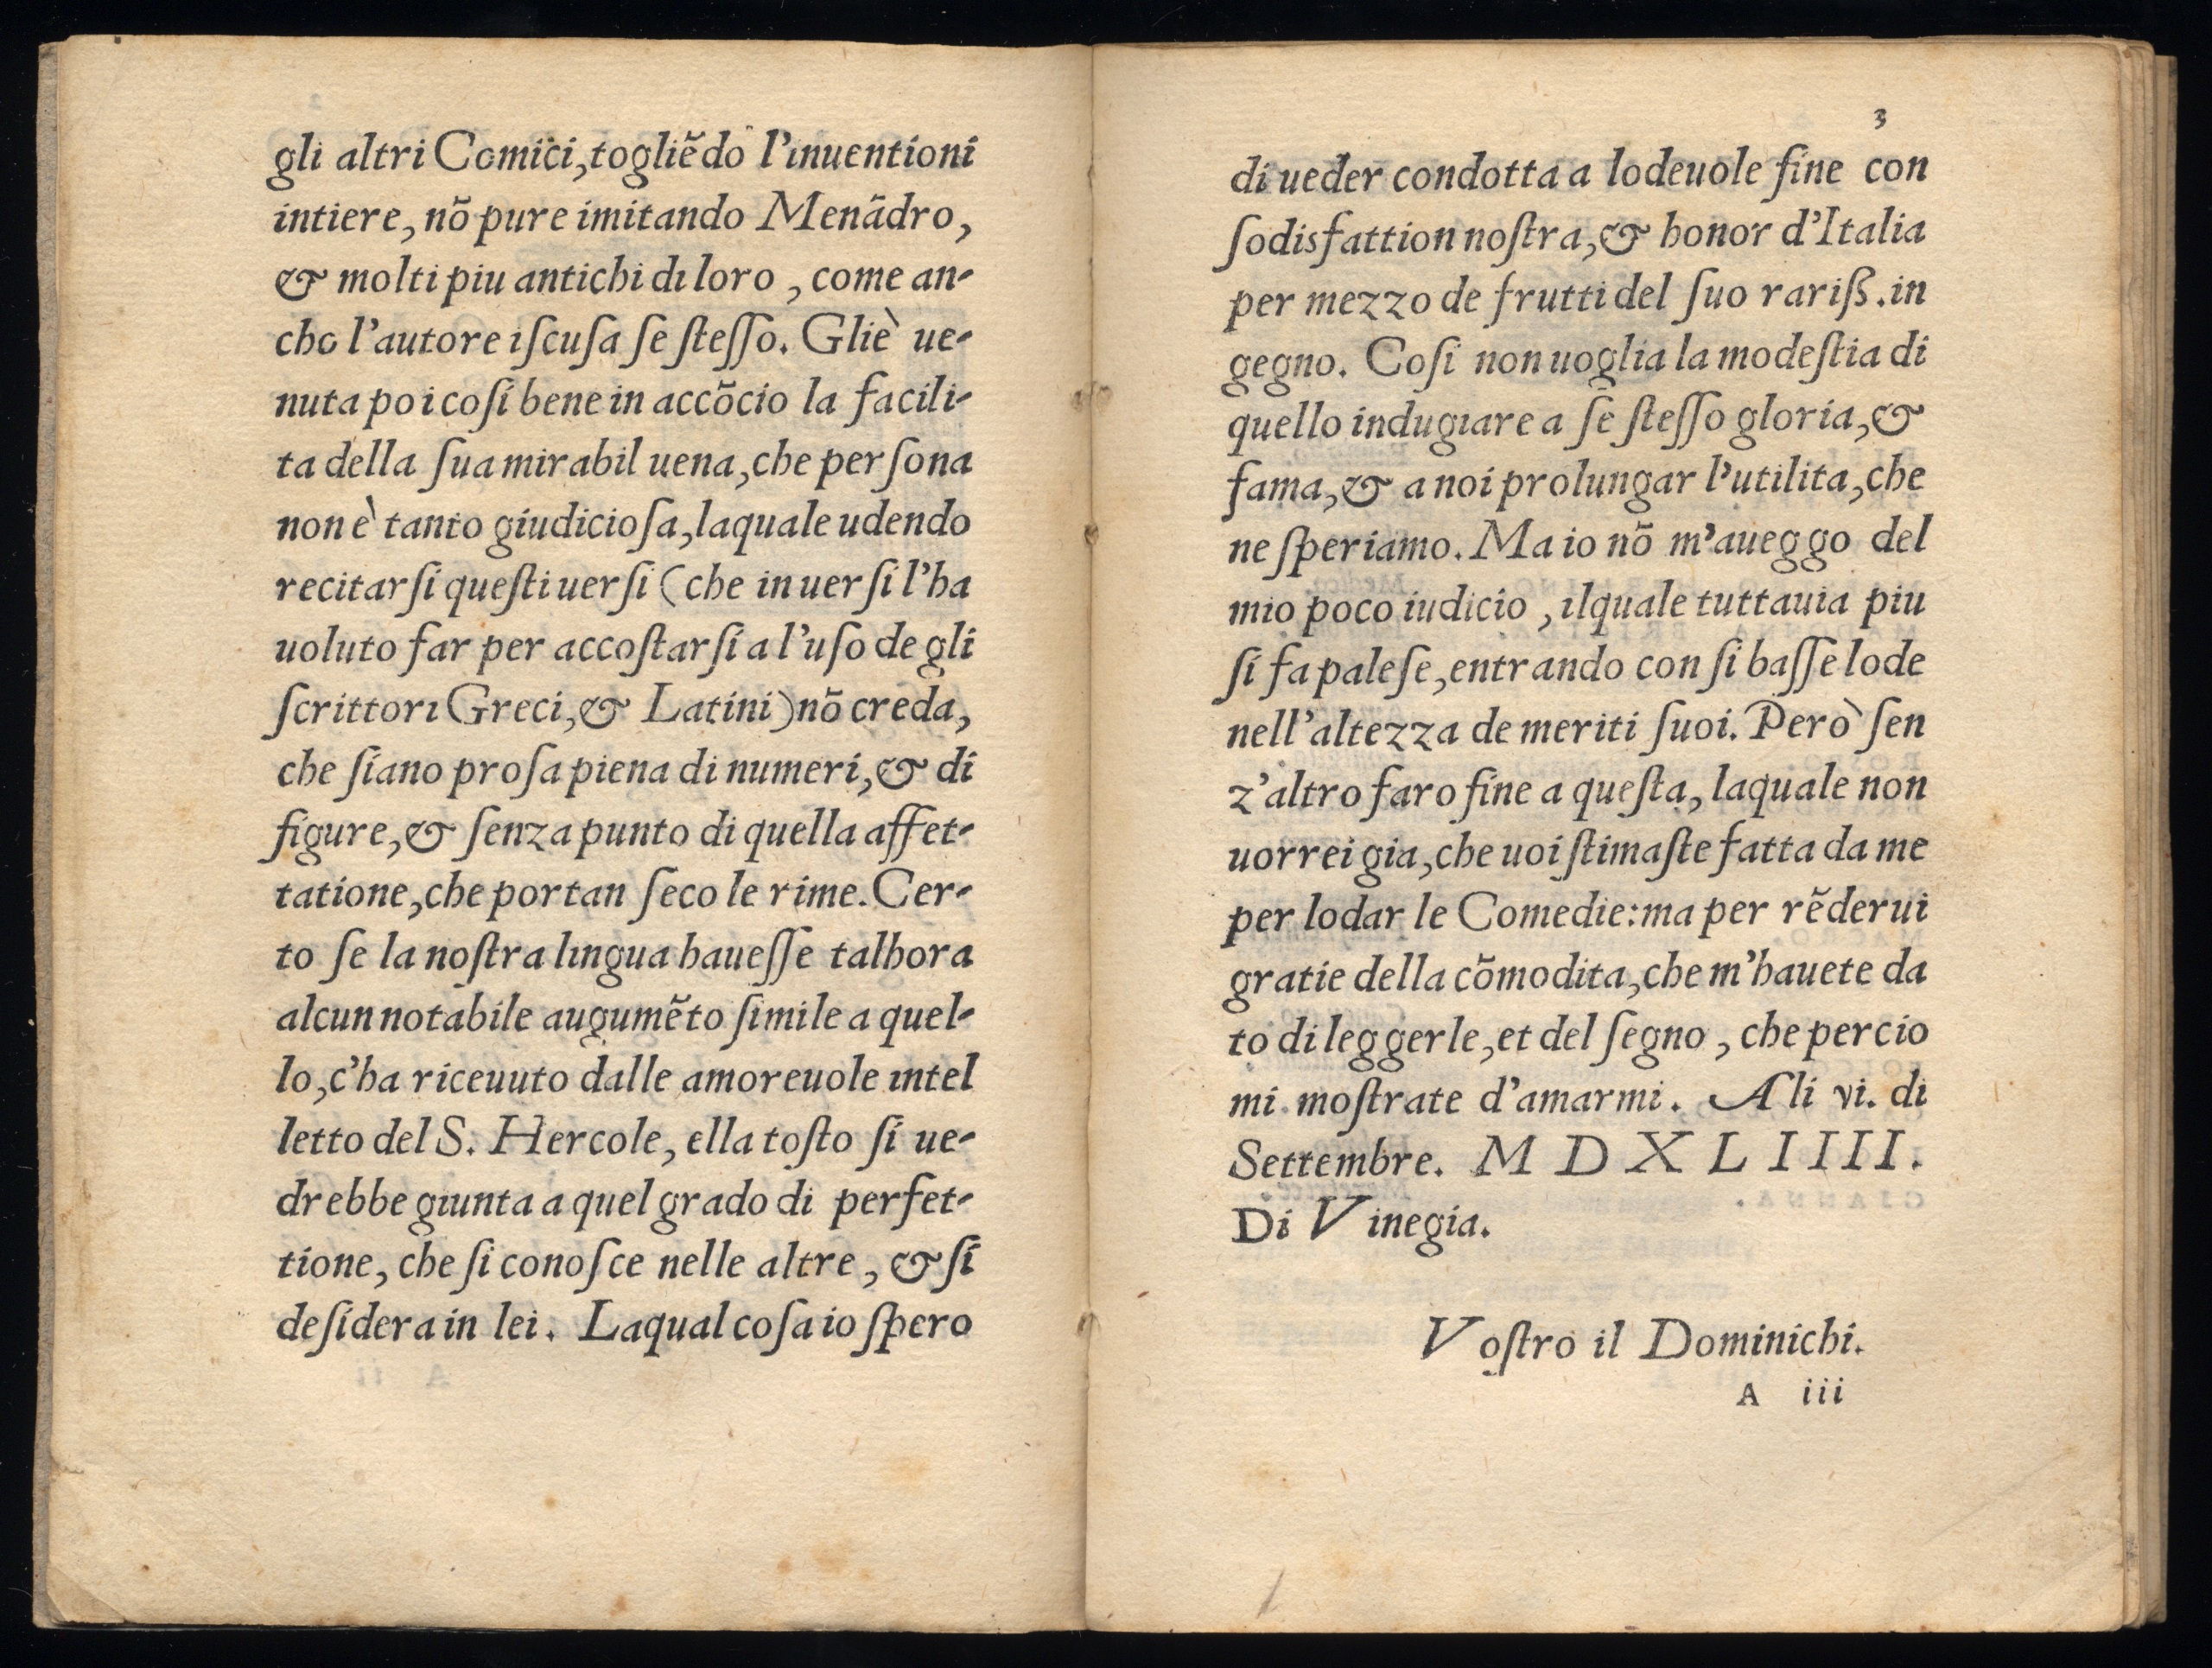 gli altri Comici,togliẽdo l'inuentioni
intiere, nõ pure imitando Menãdro,
& molti piu antichi di loro , come an-
cho l'autore iſcuſa ſe ſteſſo. Gliè ue-
nuta poi coſi bene in accõcio la facili-
ta della ſua mirabil uena,che perſona
non è tanto giudicioſa,laquale udendo
recitarſi queſti uerſi (che in uerſi l'ha
uoluto far per accoſtarſi a l'uſo de gli
ſcrittori Greci,& Latini) nõ creda,
che ſiano proſa piena di numeri,& di
figure,& ſenza punto di quella affet-
tatione,che portan ſeco le rime. Cer-
to ſe la noſtra lingua haueſſe talhora
alcun notabile augumẽto ſimile a quel-
lo,c'ha riceuuto dalle amoreuole intel
letto del S. Hercole, ella toſto ſi ue-
drebbe giunta a quel grado di perfet-
tione, che ſi conoſce nelle altre , & ſi
deſidera in lei. Laqual coſa io ſpero
3
di ueder condotta a lodeuole fine con
ſodisfattion noſtra,& honor d'Italia
per mezzo de frutti del ſuo rariß.in
gegno. Coſi non uoglia la modeſtia di
quello indugiare a ſe ſteſſo gloria,&
fama,& a noi prolungar l'utilita,che
ne ſperiamo. Ma io nõ m'aueggo del
mio poco iudicio , ilquale tuttauia piu
ſi fa paleſe,entrando con ſi baſſe lode
nell'altezza de meriti ſuoi. Però ſen
z'altro faro fine a queſta, laquale non
uorrei gia,che uoi ſtimaſte fatta da me
per lodar le Comedie:ma per rẽderui
gratie della cõmodita,che m'hauete da
to di leggerle,et del ſegno , che percio
mi moſtrate d'amarmi. A li vi. di
Settembre. M D X L I I I I.
Di Vinegia.
Voſtro il Dominichi.
A iii